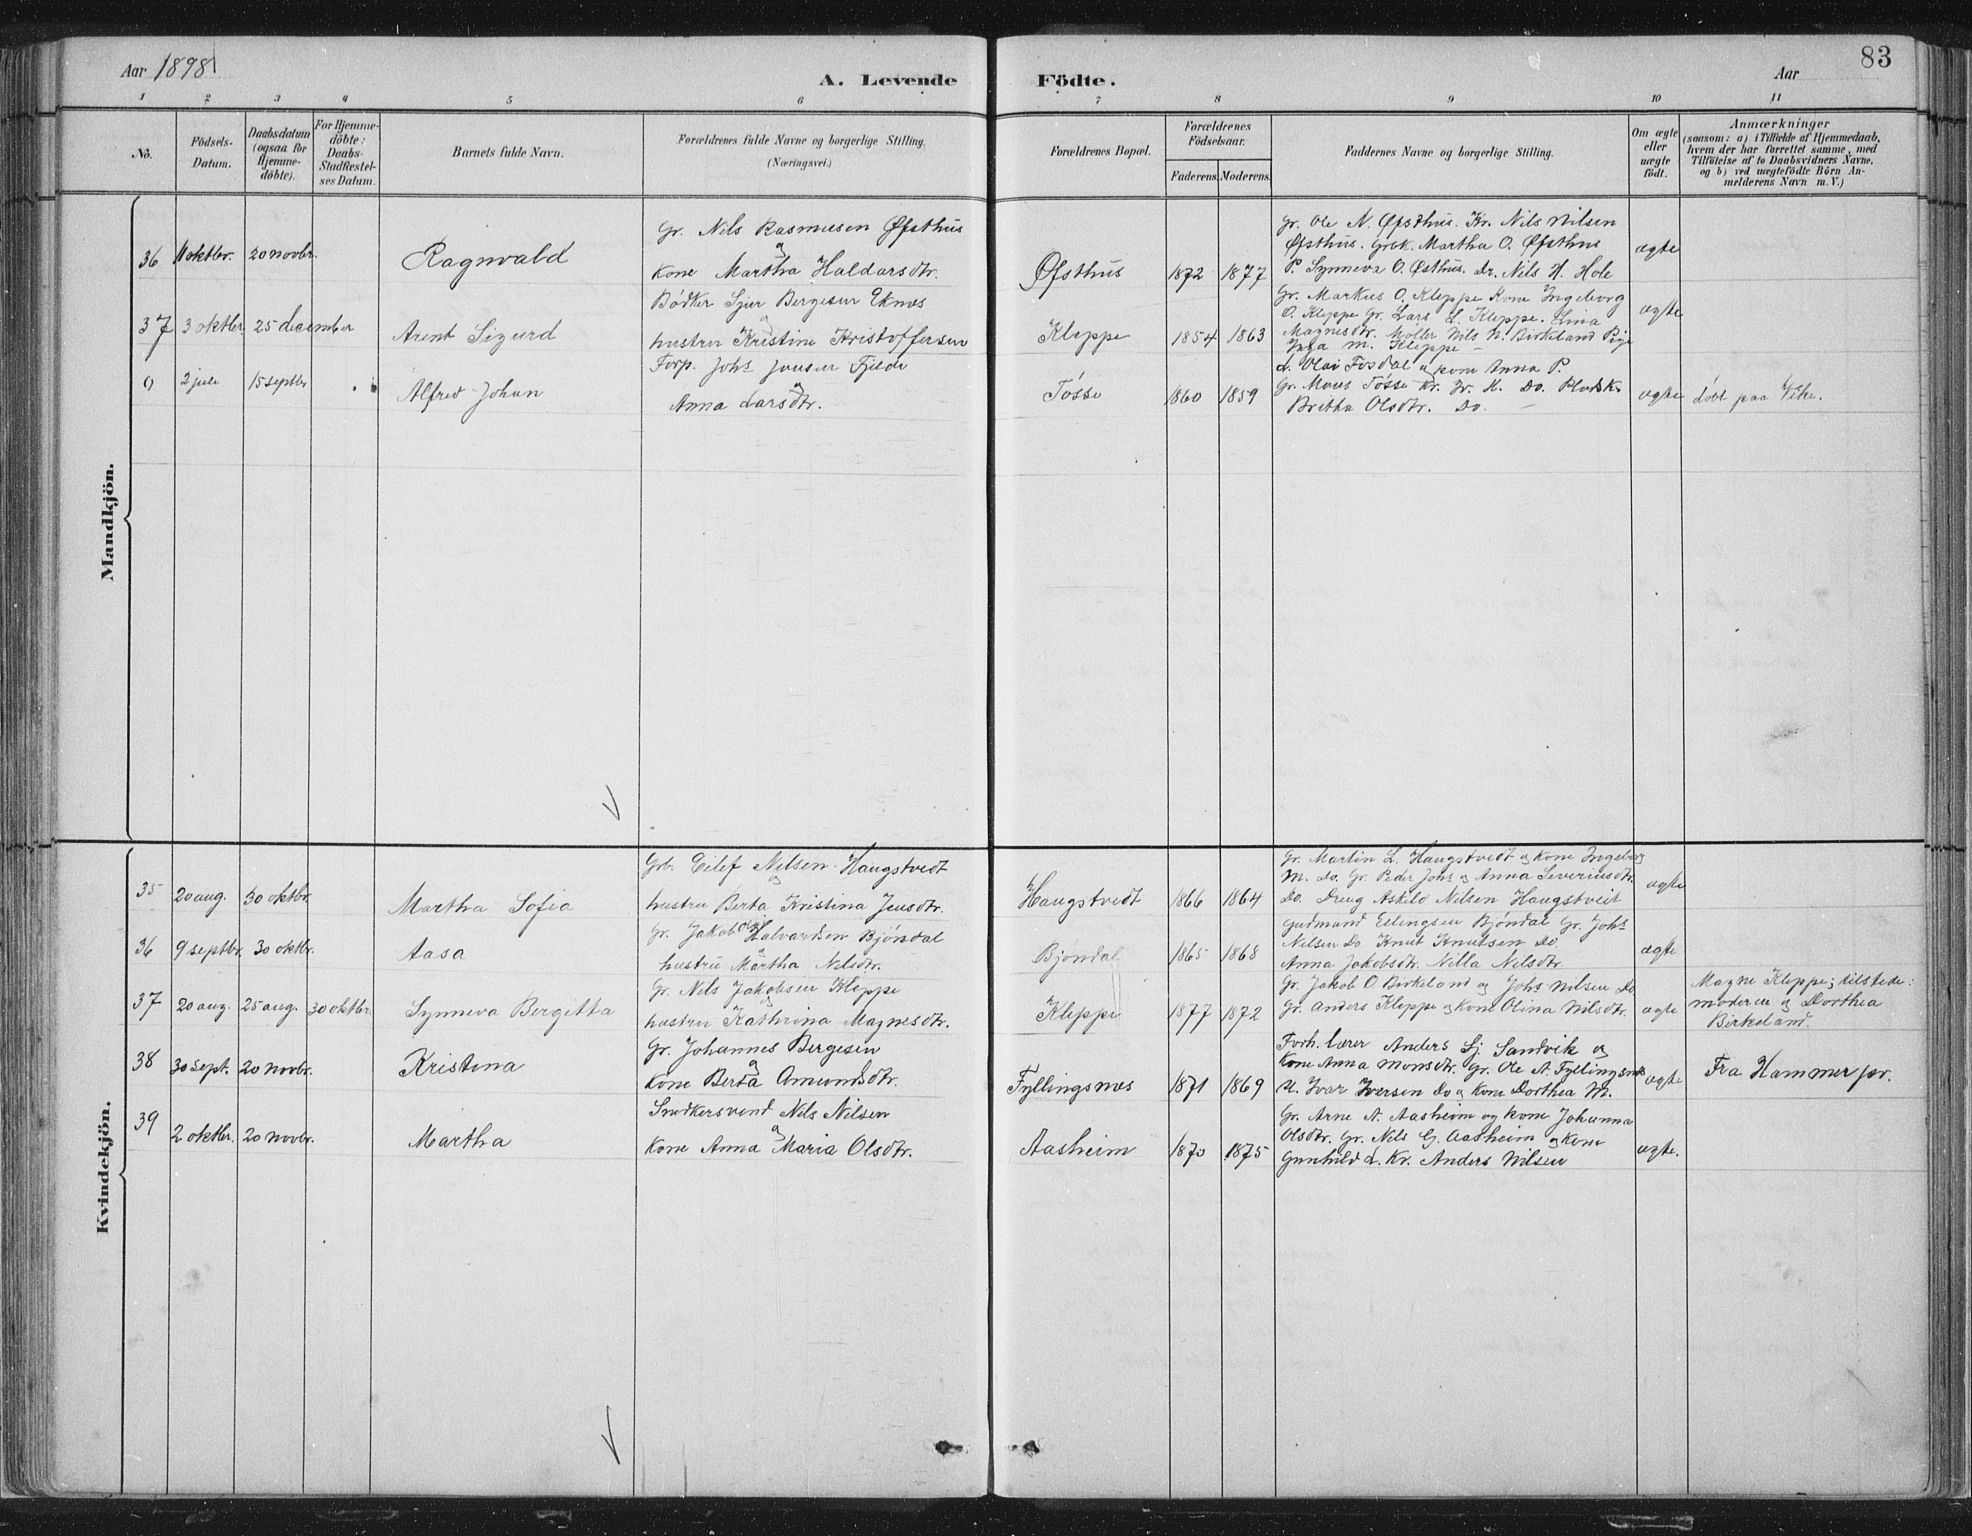 Aar 1898
A. Levende
Födte.
Aar
83
1 2 3 4 5 6 7 8 9 10 11
No.
Födsels-
Datum.
Daabsdatum
(ogsaa for
Hjemme-
döbte).
For Hjemme-
döbte:
Daabs-
Stadfæstel-
ses Datum.
Barnets fulde Navn.
Forældrenes fulde Navne og borgerlige Stilling.
(Næringsvei.)
Forældrenes Bopæl.
Forældrenes
Födselsaar.
Faderens. Moderens.
Faddernes Navne og borgerlige Stilling.
Om ægte
eller
uægte
födt.
Anmærkninger
(saasom: a) i Tilfælde af Hjemmedaab,
hvem der har forrettet samme, med
Tilföielse af to Daabsvidners Navne,
og b) ved uægtefödte Börn An-
melderens Navn m. V.)
Mandkjön.
36 11 oktbr. 20 novbr. Ragnvald
Gr. Nils Rasmusen Øfsthus
og
Kone Martha Haldorsdtr.
Øfsthus 1872 1877
Gr. Ole N. Øfsthus. Kr. Nils Nilsen
Øfsthus. Grbk. Martha O. Øfsthus
P. Synneva O. Østhus. Dr. Nils H. Hole
ægte
37 3 oktbr 25 december Arent Sigurd
Bødker Sjur Bergesen Eknes
og
hustru Kristine Kristoffersen
Kleppe 1854 1863
Gr. Markus O. Kleppe Kone Ingeborg
O. Kleppe Gr. Lars L. Kleppe. Lina
Magnesdtr. Møller Nils N. Birkeland Pige
Inga M. Kleppe –
ægte
0 2 jule 15 septbr Alfred Johan
Forp. Johs Jonsen Fjelde
og
Anna Larsdtr.
Tøsse 1860 1859
L. Olai Fosdal og kone Anna P.
Gr. Mons Tøsse Kr. Jr. H. Do.
Britha Olsdtr. Do. –
ægte døbt paa Vike.
Kvindekjön.
35 20 aug. 30 oktbr. Martha Sofia
Grb. Eilef Nilsen Haugstvedt
og
hustru Berta Kristina Jensdtr.
Haugstvedt 1866 1864
Gr. Martin L. Haugstvedt og Kone Ingeborg
M. Do. Gr. Peder Johs og Anna Severinsdtr.
Do. Dreng Askild Nilsen Haugstveit
ægte
36 9 septbr. 30 oktbr. Aasa
Gr. Jakob Halvardsen Bjøndal
og
hustru Martha Nilsdtr.
Bjøndal 1865 1868
Gudmund Ellingsen Bjøndal Gr. Johs
Nilsen Do Knut Knutsen Do.
Anna Jakobsdtr. Nilla Nilsdtr
ægte
37 20 aug. 25 aug. 30 oktbr. Synneva Bergitta
Gr. Nils Jakobsen Kleppe
og
hustru Kathrina Magnesdtr.
Kleppe 1877 1872
Gr. Jakob O Birkeland og Johs Nilsen Do
Gr. Anders Kleppe og Kone Olina Nilsdtr.
ægte
Magne Kleppe; tilstede:
moderen og Dorthea
Birkeland.
38 30 sept. 20 novbr. Kristina
Gr. Johannes Bergesen
og
Kone Berta Amundsdtr.
Fyllingsnes 1871 1869
Forh. lærer Anders Sj. Sandvik og
Kone Anna Monsdtr. Gr. Ole A. Fyllingsnes
U. Ivar Iversen Do og Kone Dorthea M.
ægte
Fra Hammer pr.
39 2 oktbr. 20 novbr. Martha
Snedkersvend Nils Nilsen
og
Kone Anna Maria Olsdtr.
Aasheim 1870 1875
Gr. Arne A. Aasheim og kone Johanna
Olsdtr. Gr. Nils G. Aasheim og Kone
Gunhild L. Kr. Anders Nilsen
ægte.